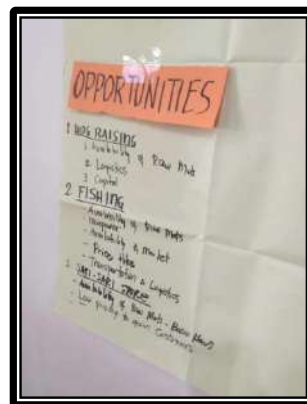 OPPORTUNITIES
1 HOG RAISING
1. Availability of Raw Mats
2. Logistics
3 Capital
2 FISHING
- Availability of Raw Mats
- Manpower
- Availability of Market
- Prices
- Transportation & Logistics
3 SARI-SARI STORE
- Availability of Raw Mats - Basic
- Low pricing to gain Customers